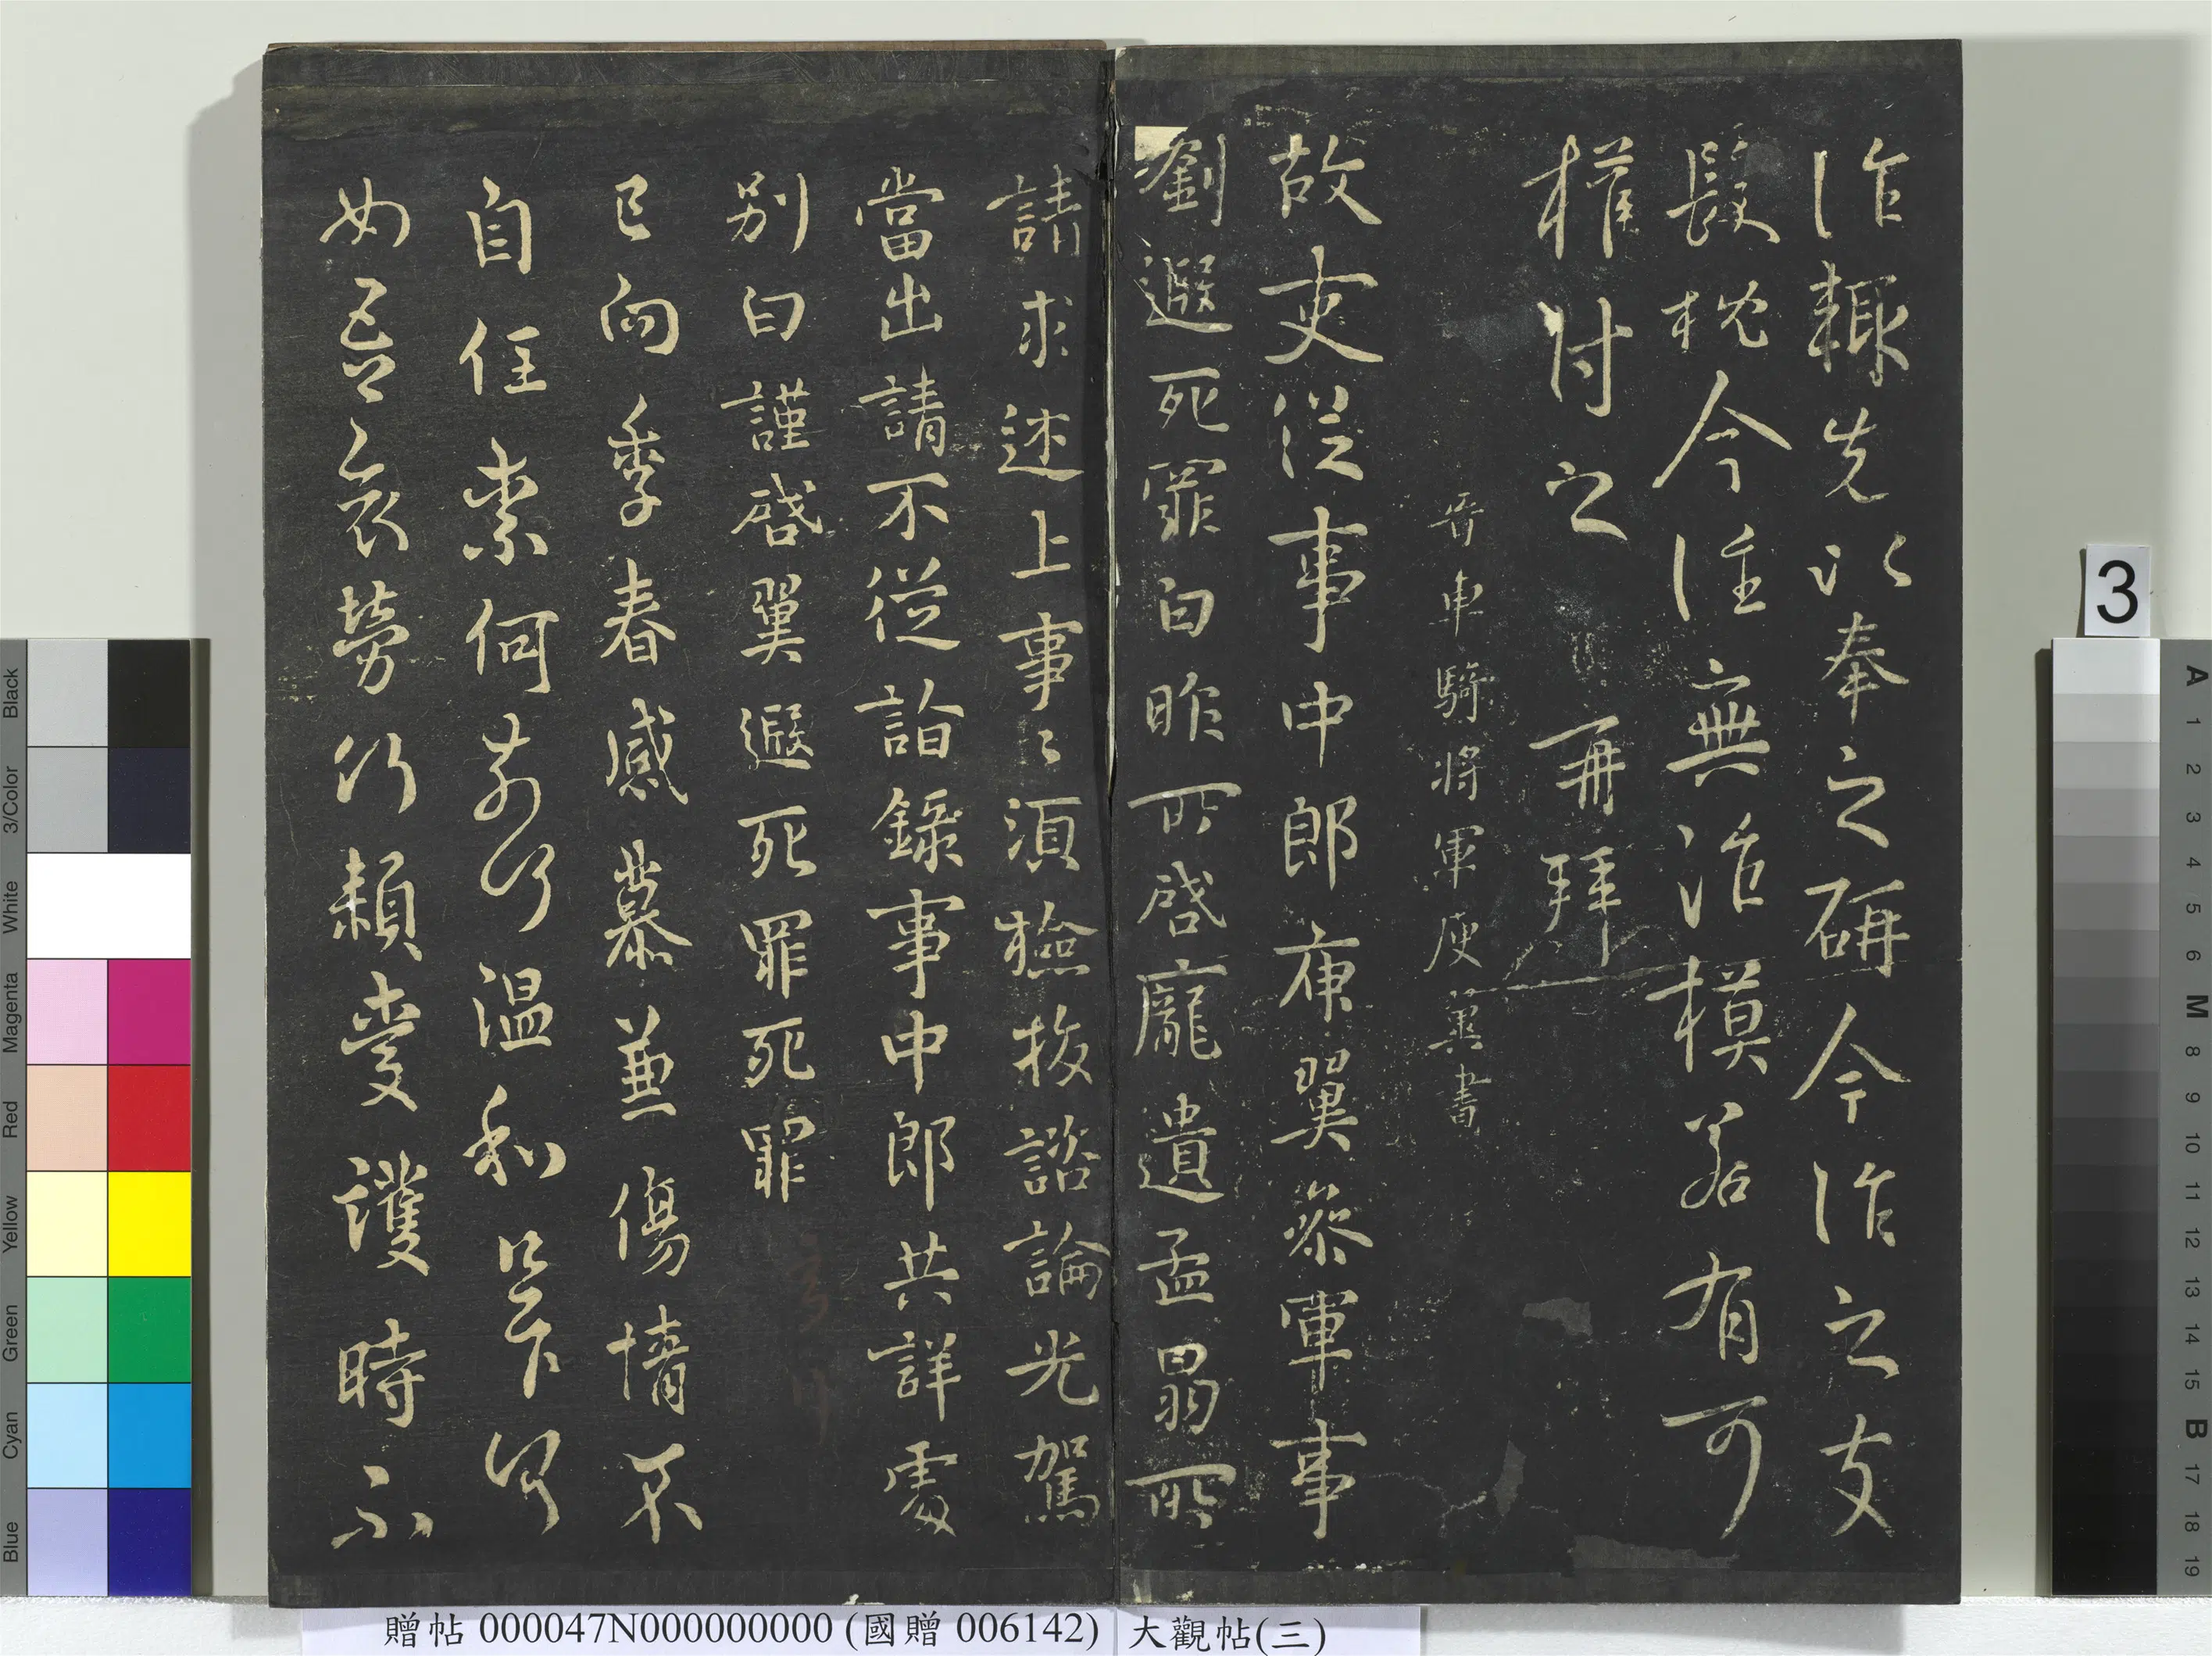 作䊢先以奉之研今作之支
髮枕今往無泥模若有可
權付之 再拜
晉車騎將軍庾翼書
故吏從事中郎庾翼參軍事
劉遐死罪白昨所啓龐遺孟昺所
請求述上事〻須檢校諮論光駕
當出請不從詣錄事中郎共詳處
別白謹啓翼遐死罪死罪
已向季春感慕兼傷情不
自任奈何奈何溫和足下何
如吾哀勞何賴愛護時不
贈帖 000047N000000000 (國贈 006142) 大觀帖(三)
3
Black
3/Color
White
Magenta
Red
Yellow
Green
Cyan
Blue
A 1 2 3 4 5 6 M 8 9 10 11 12 13 14 15 B 17 18 19